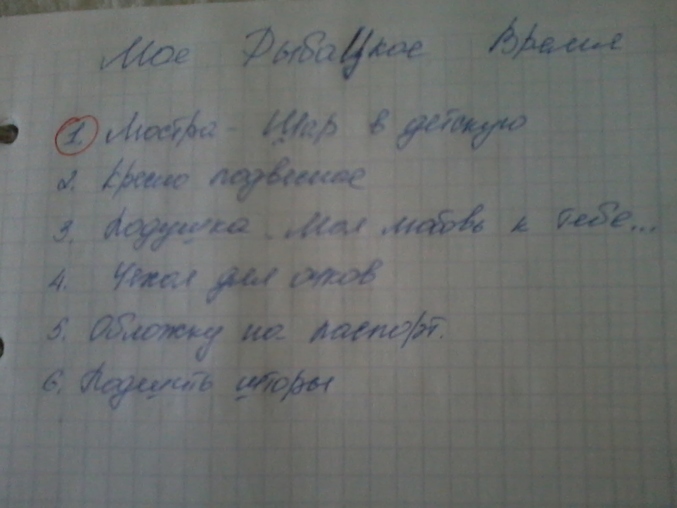 Мое Рыбацкое Время
1. Люстра - Шар в детскую
2. Кресло подвесное
3. Подушка „Моя любовь к тебе...
4. Чехол для очков
5. Обложку на паспорт.
6. Подшить шторы